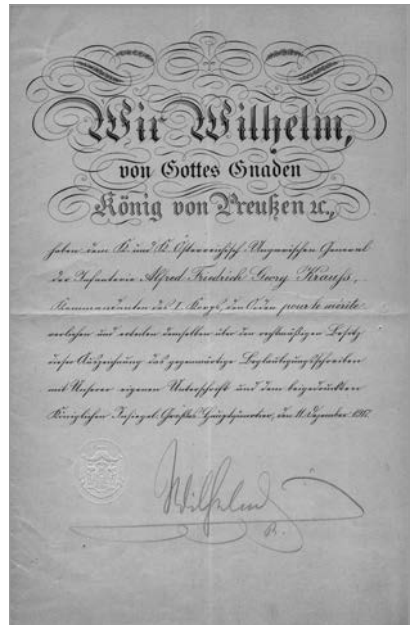 Wir Wilhelm,
von Gottes Gnaden
König von Preußen ꝛc.,
haben dem K. und K. Österreichisch-Ungarischen General
der Infanterie Alfred Friedrich Georg Krauß,
Kommandanten des I. Korps, den Orden pour le mérite
verliehen und erteilen demselben über den rechtmäßigen Besitz
dieser Auszeichnung das gegenwärtige Beglaubigungsschreiben
mit Unserer eigenen Unterschrift und dem beigedruckten
Königlichen Insiegel. Großes Hauptquartier, den 11. Dezember 1917.
Wilhelm
R.